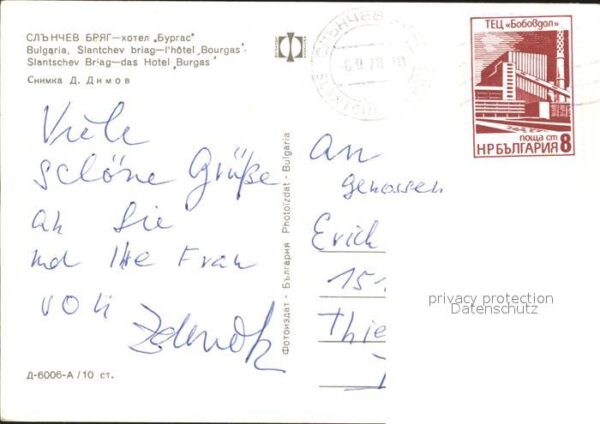 СЛЪНЧЕВ БРЯГ—хотел „Бургас"
Bulgaria, Slantchev briag—l'hôtel „Bourgas"
Slantschev Briag—das Hotel „Burgas"
Снимка Д. Димов
Viele
schöne Grüße
an Sie
und Ihre Frau
von
Д-6006-А/10 ст.
Фотоиздат - България Photoizdat - Bulgaria
СЛЪНЧЕВ
6.9.78
SLANTCH
ТЕЦ „Бобовдол"
поща ст
НР БЪЛГАРИЯ 8
An
genossen
Erich
151
Thie
privacy protection
Datenschutz